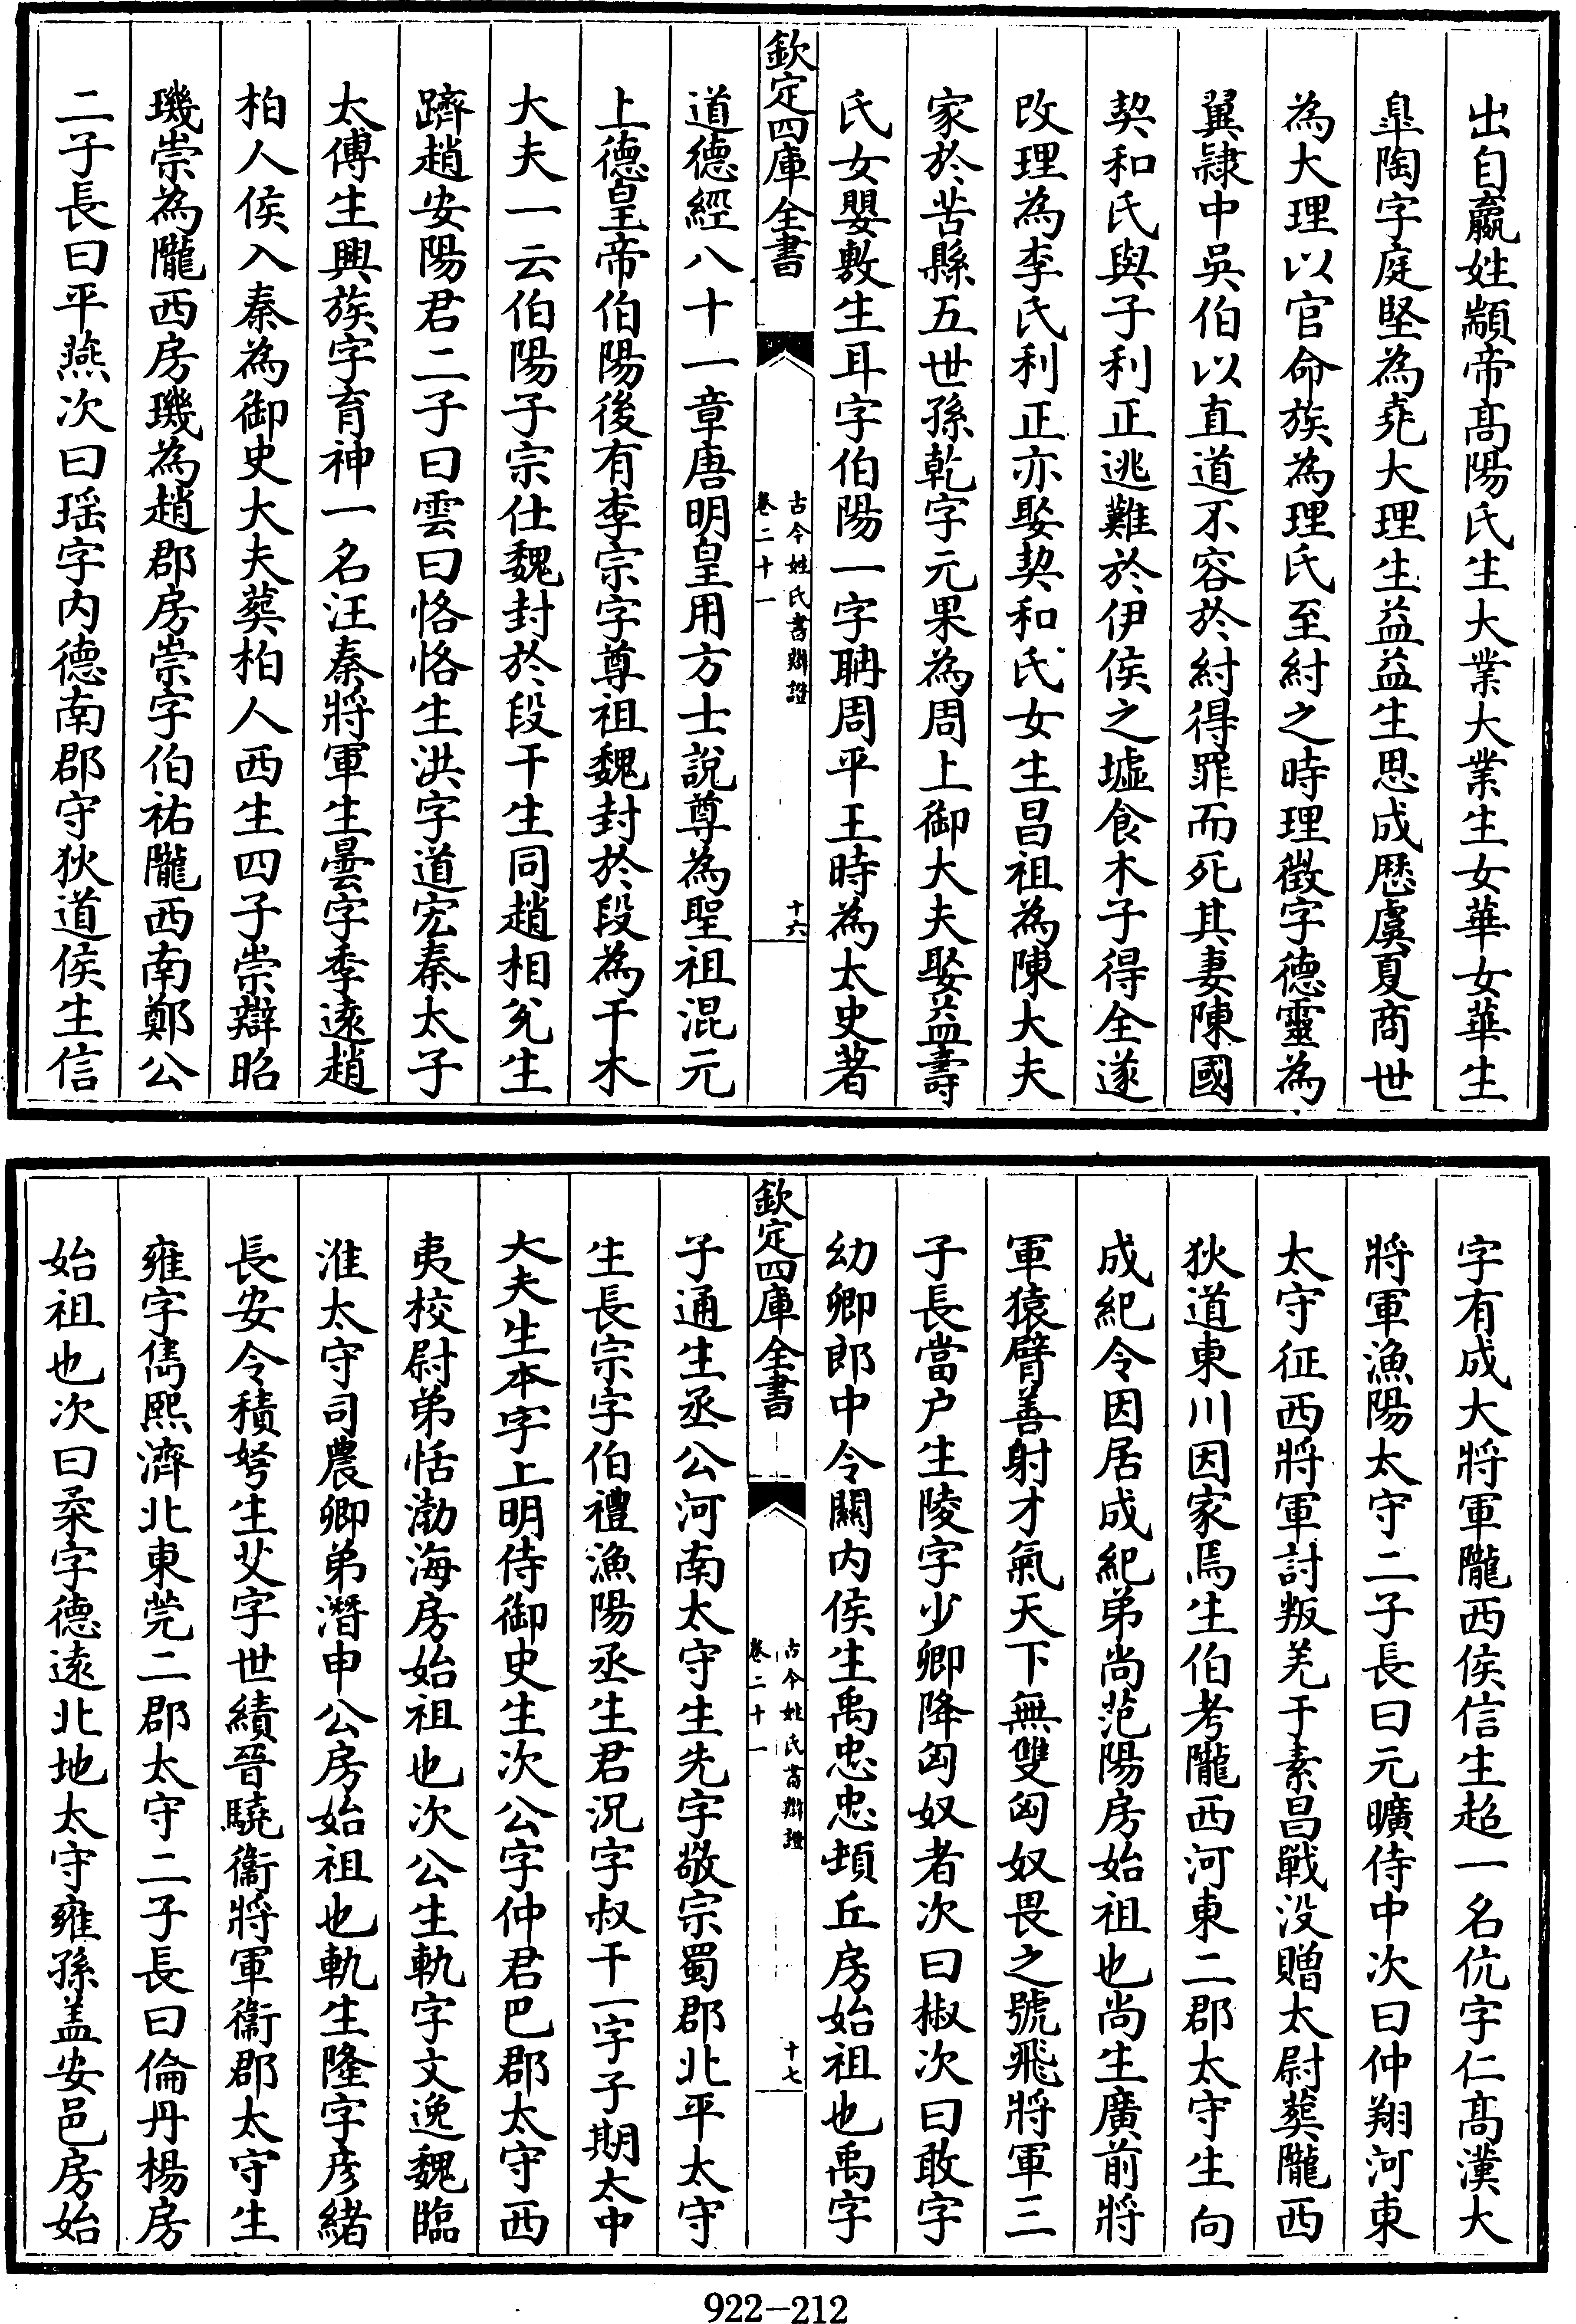 出自嬴姓顓帝髙陽氏生大業大業生女華女華生
臯陶字庭堅為堯大理生益益生恩成歴虞夏商世
為大理以官命族為理氏至紂之時理徵字德靈為
翼隷中吳伯以直道不容於紂得罪而死其妻陳國
契和氏與子利正逃難於伊侯之墟食木子得全遂
改理為李氏利正亦娶契和氏女生昌祖為陳大夫
家於苦縣五世孫乾字元果為周上御大夫娶益壽
氏女嬰敷生耳字伯陽一字聃周平王時為太史著
欽定四庫全書
古今姓氏書辯證
卷二十一
十六
道德經八十一章唐明皇用方士說尊為聖祖混元
上德皇帝伯陽後有李宗字尊祖魏封於段為干木
大夫一云伯陽子宗仕魏封於段干生同趙相兊生
躋趙安陽君二子曰雲曰恪恪生洪字道宏秦太子
太傅生興族字育神一名汪秦將軍生曇字季逺趙
柏人侯入秦為御史大夫葬柏人西生四子崇辯昭
璣崇為隴西房璣為趙郡房崇字伯祐隴西南鄭公
二子長曰平燕次曰瑶字内德南郡守狄道侯生信
字有成大將軍隴西侯信生超一名伉字仁髙漢大
將軍漁陽太守二子長曰元曠侍中次曰仲翔河東
太守征西將軍討叛羌于素昌戰没贈太尉葬隴西
狄道東川因家焉生伯考隴西河東二郡太守生向
成紀令因居成紀弟尚范陽房始祖也尚生廣前將
軍猿臂善射才氣天下無雙匈奴畏之號飛將軍三
子長當户生陵字少卿降匈奴者次曰椒次曰敢字
幼卿郎中令關内侯生禹忠忠頓丘房始祖也禹字
欽定四庫全書
古今姓氏書辯證
卷二十一
十七
子通生丞公河南太守生先字敬宗蜀郡北平太守
生長宗字伯禮漁陽丞生君況字叔干一字子期太中
大夫生本字上明侍御史生次公字仲君巴郡太守西
夷校尉弟恬渤海房始祖也次公生軌字文逸魏臨
淮太守司農卿弟潛申公房始祖也軌生隆字彦緒
長安令積弩生艾字世績晉驍衞將軍衞郡太守生
雍字儁熙濟北東莞二郡太守二子長曰倫丹楊房
始祖也次曰柔字德逺北地太守雍孫盖安邑房始
922-212